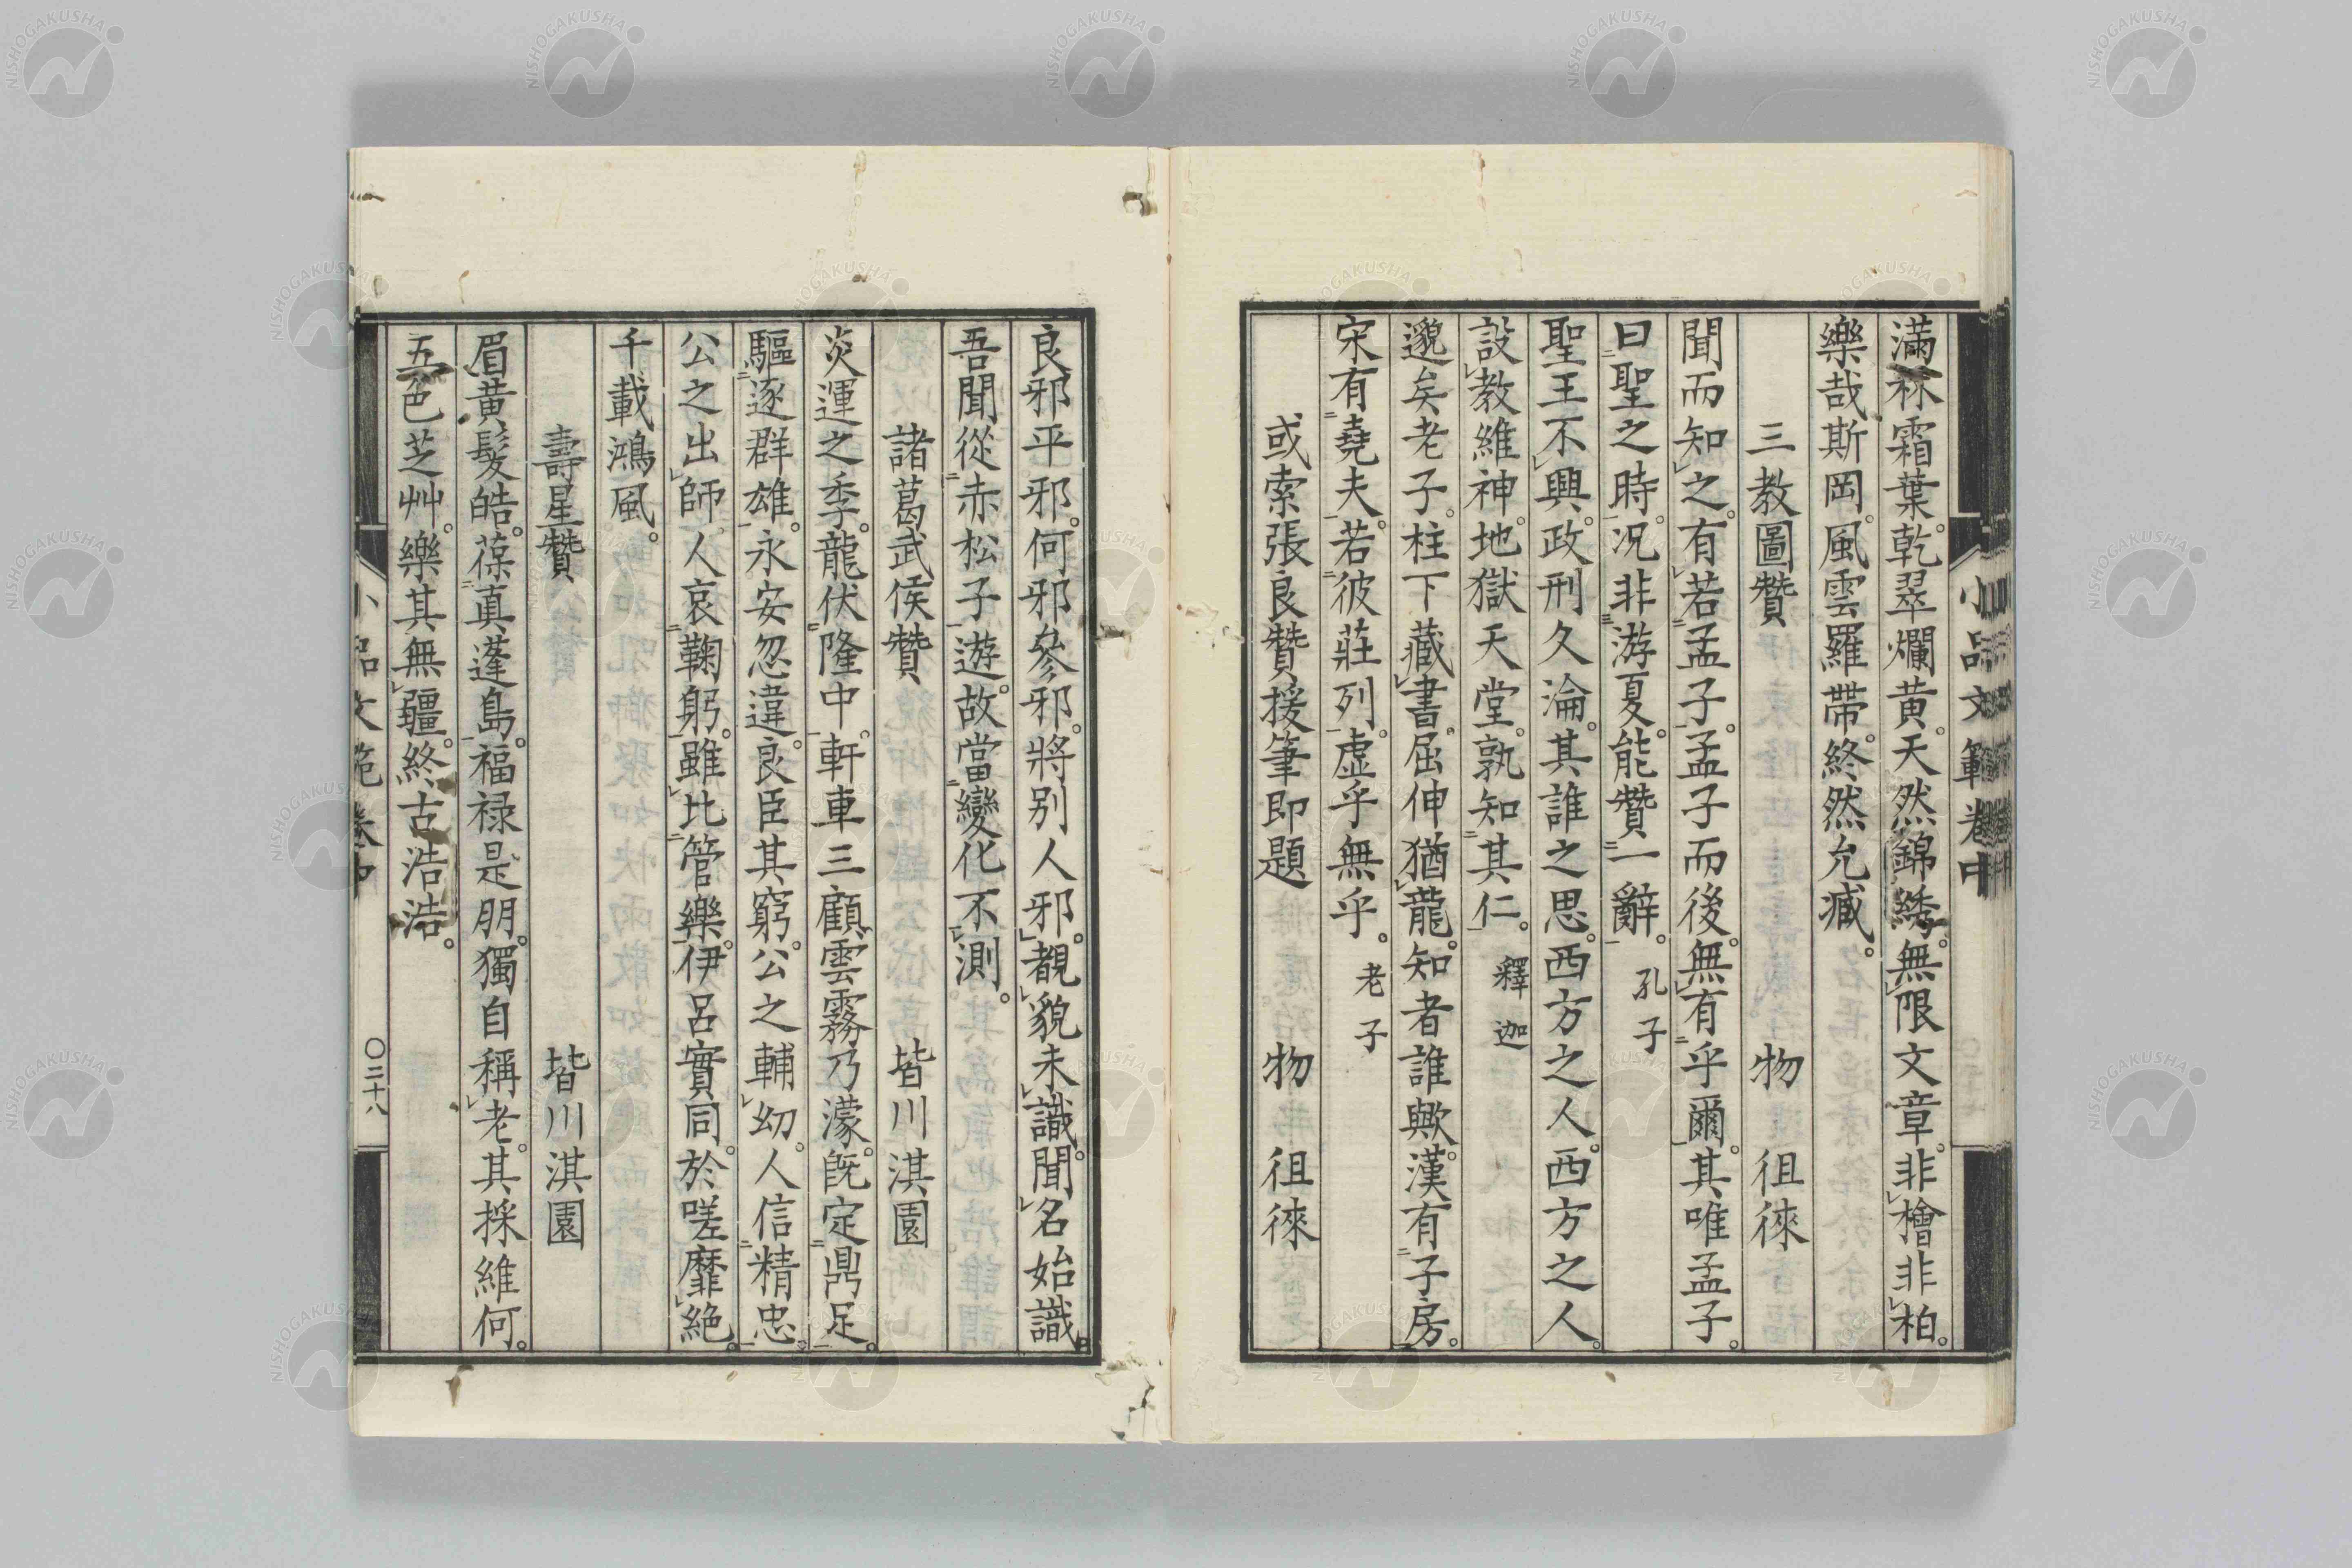 滿林霜葉乾。翠爛黄。天然錦綉。無限文章。非檜非柏。
樂哉斯岡。風雲羅帶。終然允臧。
三教圖贊 物徂徠
聞而知之。有若孟子。孟子而後。無有乎爾。其唯孟子。
曰聖之時。況非游夏。能贊一辭。孔子
聖王不興。政刑久淪。其誰之思。西方之人。西方之人。
設教維神。地獄天堂。孰知其仁。釋迦
邈矣老子。柱下藏書。屈伸猶龍。知者誰歟。漢有子房。
宋有堯夫。若彼莊列。虛乎無乎。老子
或索張良贊援筆即題 物徂徠
小品文範卷中
良邪平邪。何邪參邪。將別人邪。覩貌未識。聞名始識。
吾聞從赤松子遊。故當變化不測。
諸葛武侯贊 皆川淇園
炎運之季。龍伏隆中。軒車三顧。雲霧乃濛。既定鼎足。
驅逐群雄。永安忽違。良臣其窮。公之輔幼。人信精忠。
公之出師。人哀鞠躬。雖比管樂。伊呂實同。於嗟靡絶。
千載鴻風。
壽星贊 皆川淇園
眉黄髮皓。葆真蓬島。福禄是朋。獨自稱老。其採維何。
五色芝艸。樂其無疆。終古浩浩。
小品文範卷中 〇三十八
NISHOGAKUSHA